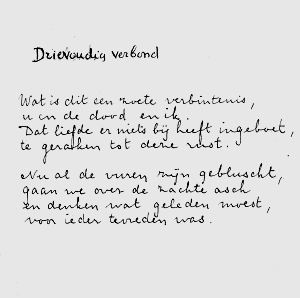 Drievoudig verbond
Wat is dit een zoete verbintenis,
u en de dood en ik.
Dat liefde er niets bij heeft ingeboet,
te geraken tot deze rust.
Nu al de vuren zijn gebluscht,
gaan we over de zachte asch
en denken wat geleden moest,
voor ieder tevreden was.